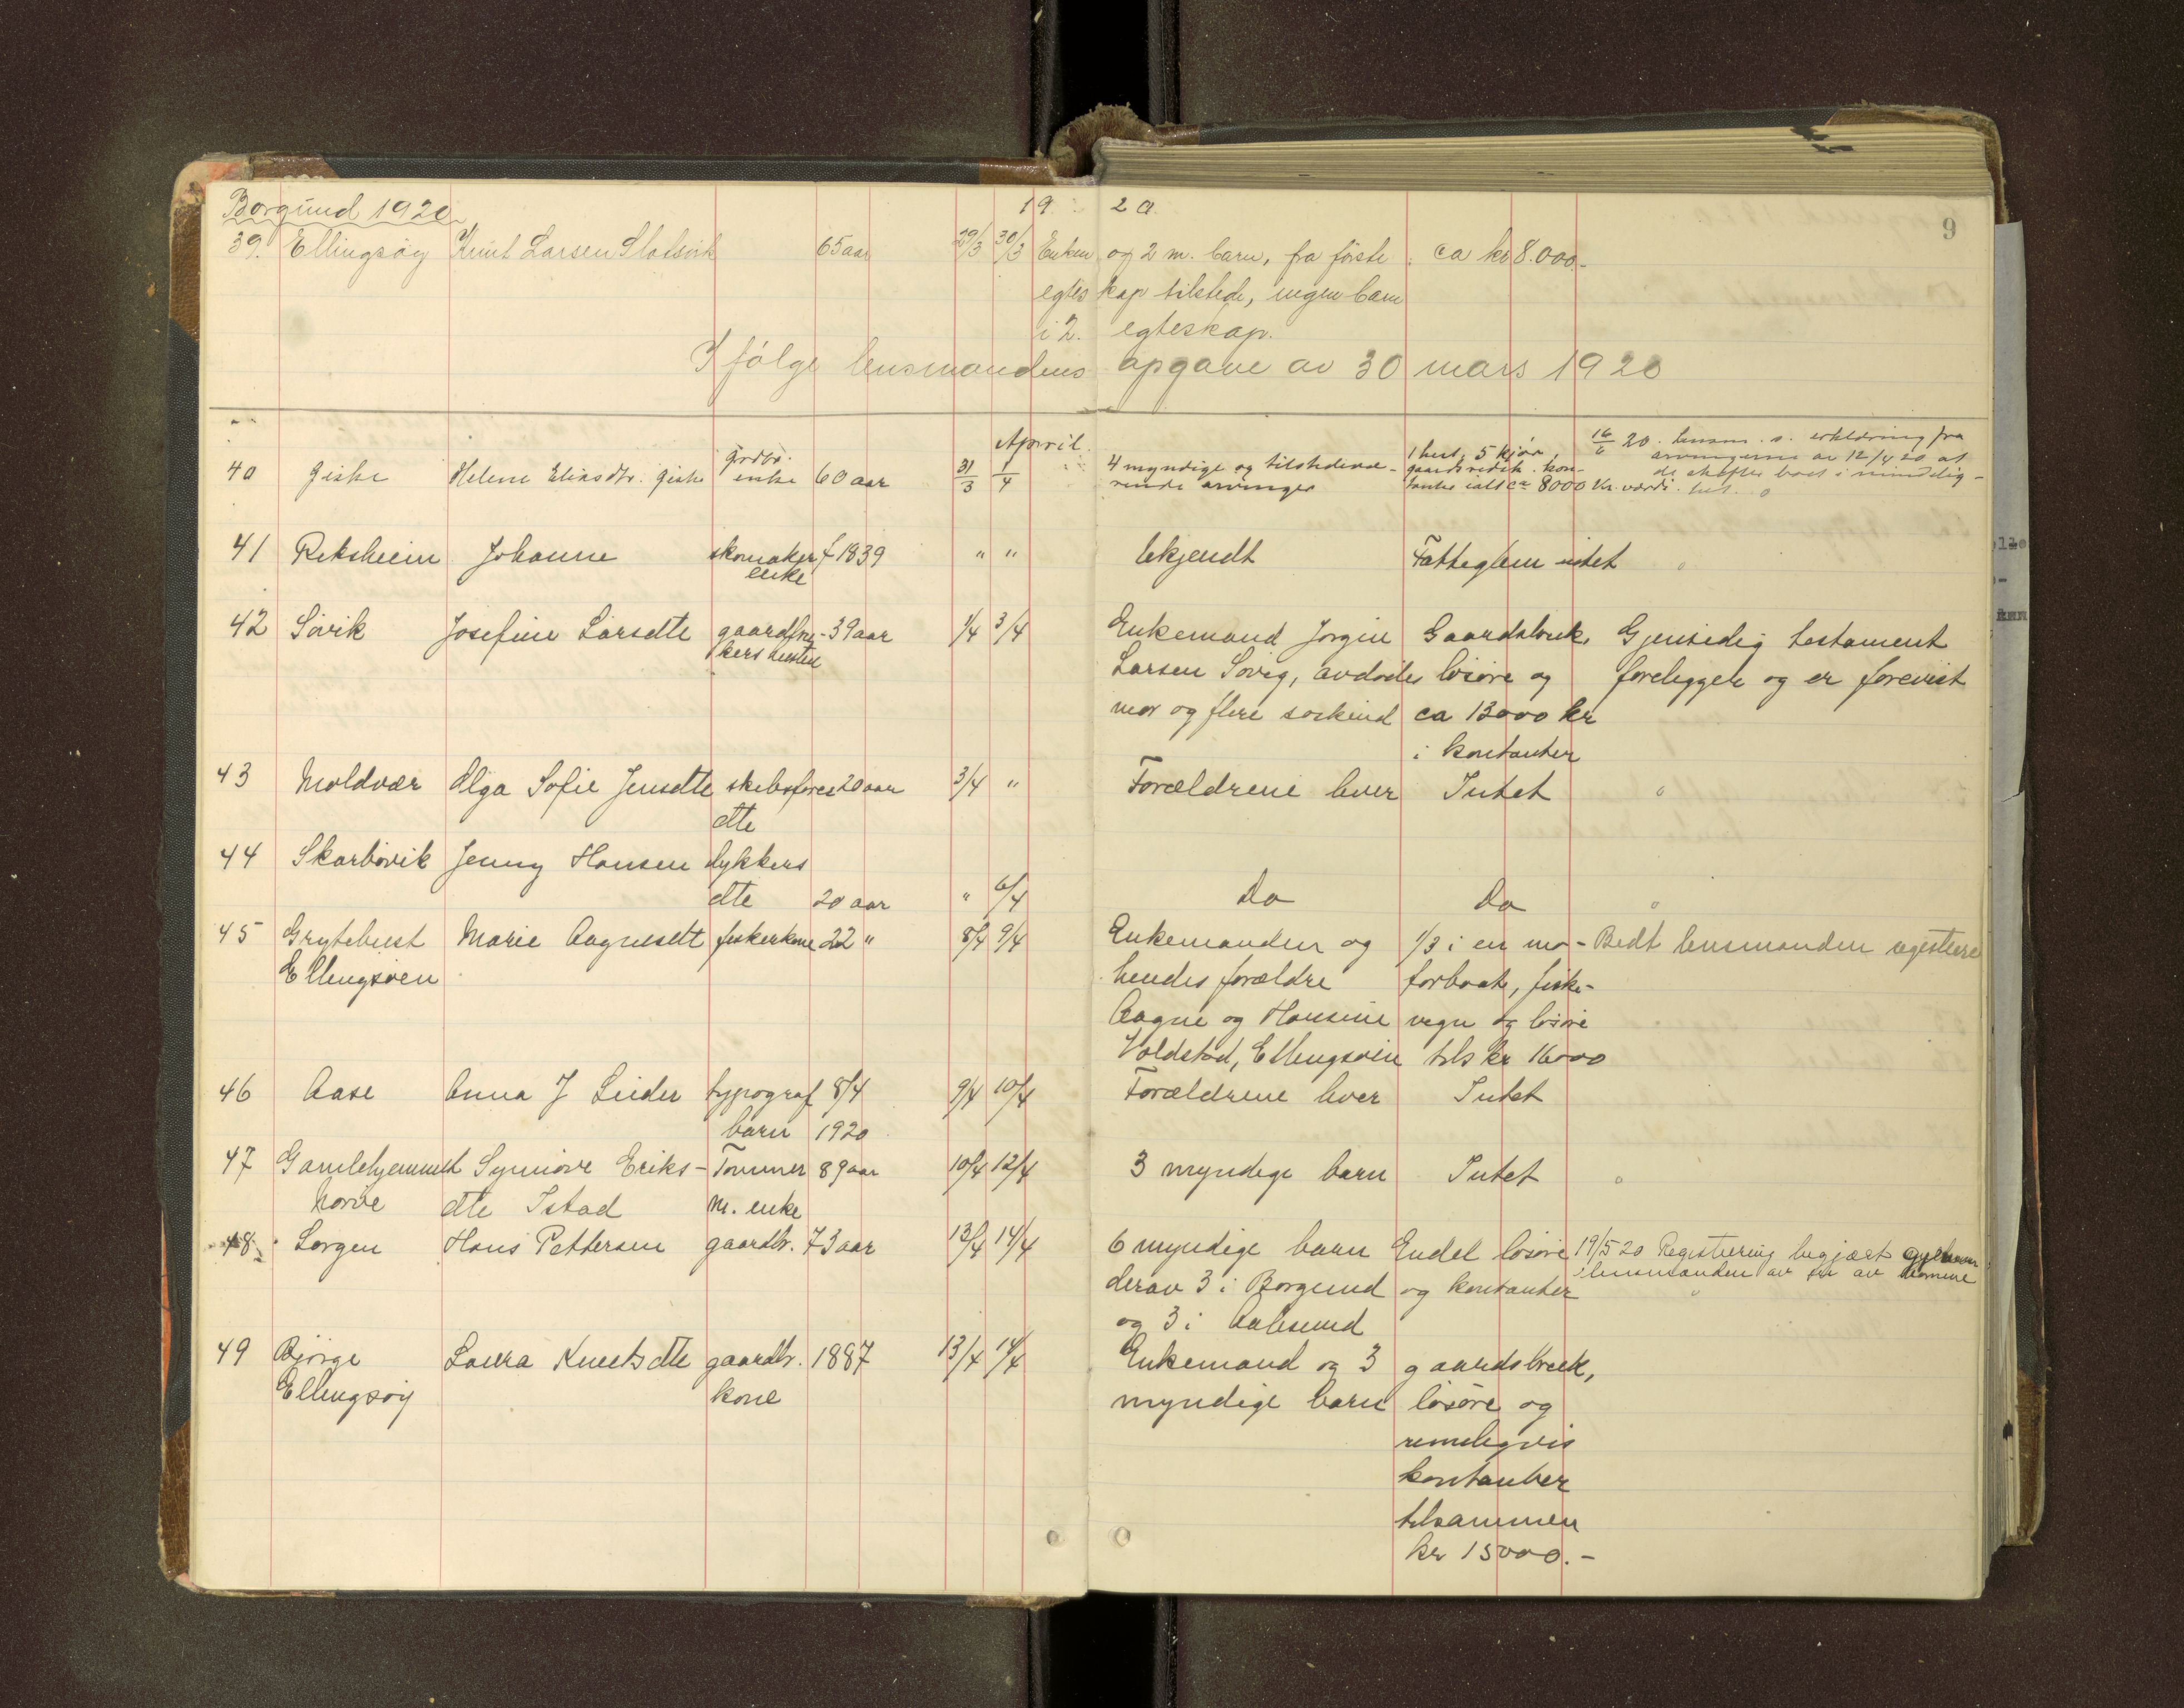 Borgund 1920
19 20
9
39. Ellingsøy Knut Larsen Slotsvik 65 aar 29/3 30/3 Enken og 2 m. barn, fra første ca kr 8.000.-
egteskap tilstede, ingen barn
i 2. egteskap.
Ifølge lensmandens opgave av 30 mars 1920
April
40 Giske Helene Eliasdtr. Giske grdbr. enke 60 aar 31/3 1/4 4 myndige og tilstedevæ- 1 hest, 5 kjør, 16/6 20. lensm. s. erklæring fra
rende arvinger gaardsredsk. kon- arvingerne av 12/4 20 at
tanter ialt ca 8000 Kr. værdi. de skifter boet i mindelig-
het.
41 Reksheim Johanne skomaker f 1839 " " Ukjendt Fattiglem intet "
enke
42 Sørik Josefine Larsdtr gaardbru- 39 aar 1/4 3/4 Enkemand Jørgen Gaardsbruk, Gjensidig testament
kers hustru Larsen Søvig, avdødes løsøre og foreligger og er forevist
mor og flere søskend ca 13000 kr
i kontanter
43 Moldvær Olga Sofie Jensdtr skibsføres 20 aar 3/4 " Forældrene lever Intet "
dtr
44 Skarbøvik Jenny Hansen dykkers
dtr 20 aar " 6/4 Do Do "
45 Grytebust Marie Aagnesdt fiskerkone 22 " 8/4 9/4 Enkemanden og 1/3 i en mo- Bedt lensmanden registrere
Ellingsøen hendes forældre torbaat, fiske-
Aagne og Hansine vegn og løsøre
Voldstad, Ellingsøen tils kr 16000
46 Aase Anna J Linder typograf 8/4 9/4 10/4 Forældrene lever Intet
barn 1920
47 Gamlehjemmet Synnøve Eriks- Tømmer 89 aar 10/4 12/4 3 myndige barn Intet "
Norve dtr Istad m. enke
48 Lorgen Hans Pettersen gaardbr. 73 aar 13/4 14/4 6 myndige barn Endel løsøre 19/5 20 Registrering begjært
derav 3 i Borgund og kontanter lensmanden av
og 3 i Aalesund
49 Bjørge Laura Knutsdtr gaardbr. 1887 13/4 14/4 Enkemand og 3 gaardsbruk,
Ellingsøy kone myndige barn løsøre og
rimeligvis
kontanter
tilsammen
kr 15000.-